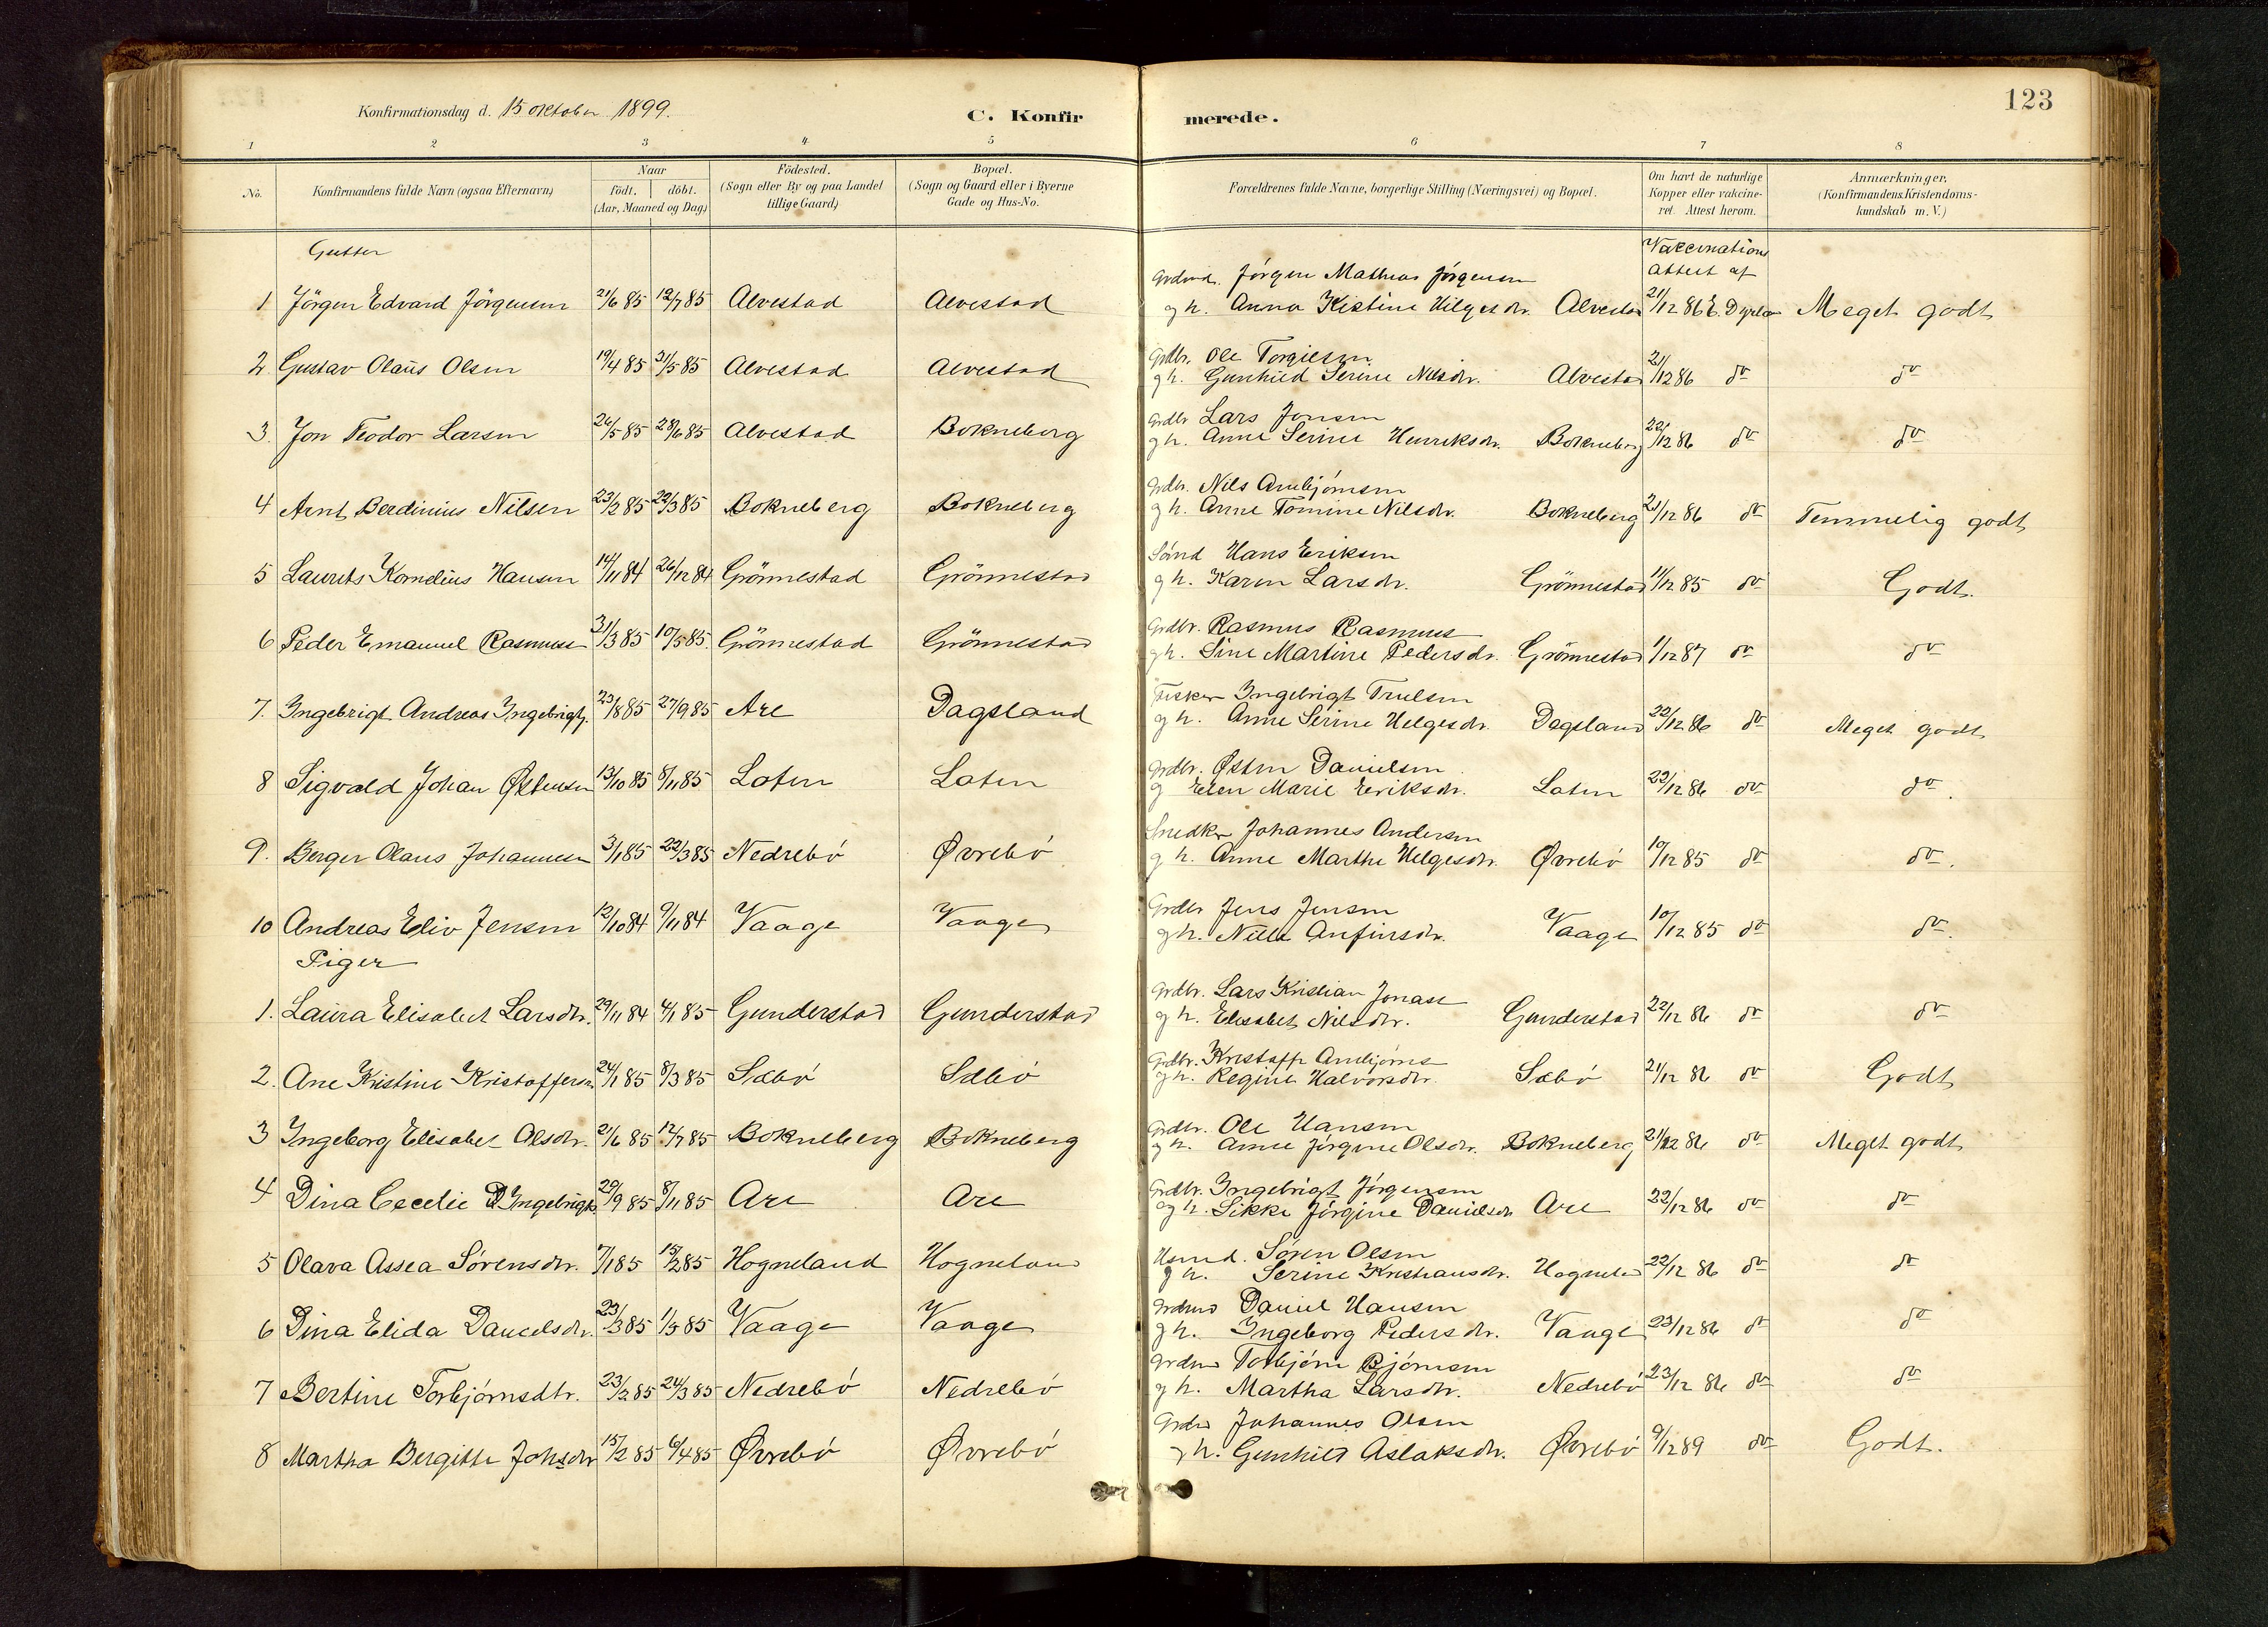 123
Konfirmationsdag d. 15 oktober 1899.
C. Konfirmerede.
1 2 3 4 5 6 7 8
No. Konfirmandens fulde Navn (ogsaa Efternavn) Naar födt. döbt. (Aar, Maaned og Dag) Födested. (Sogn eller By og paa Landet tillige Gaard) Bopæl. (Sogn og Gaard eller i Byerne Gade og Hus-No. Forældrenes fulde Navne, borgerlige Stilling (Næringsvei) og Bopæl. Om havt de naturlige Kopper eller vakcineret. Attest herom. Anmærkninger. (Konfirmandens Kristendomskundskab m. V.)
Gutter
Vaccinations
attest af
Jørgen Mathias Jørgensen
1 Jörgen Edvard Jörgensen 21/6 85 12/7 85 Alvestad Alvestad g h. Anna Kistine Helgesdr. Alvestad 21/12 86 Meget godt
Grdbr. Ole Torgilsen
2 Gustav Olaus Olsen 19/4 85 31/5 85 Alvestad Alvestad g h. Gunhild Serine Nilsdr. Alvestad 21/12 86 do do
Grdbr Lars Jonsen
3. Jon Teodor Larsen 26/5 85 28/6 85 Alvestad Bokneberg g h. Anne Serine Henriksdr. Bokneberg 22/12 86 do do
Grdbr. Nils Arnbjörnsen
4 Arnt Berdinius Nilsen 23/2 85 22/3 85 Bokneberg Bokneberg g h. Anne Tomine Nilsdr. Bokneberg 21/12 86 do Temmelig godt
Hans Eriksen
5 Laurits Kornelius Hansen 14/11 84 26/12 84 Grönnestad Grönnestad g h. Karen Larsdr. Grönnestad 11/12 85 do Godt.
Grdbr. Rasmus Rasmuss
6 Peder Emanuel Rasmuss 31/3 85 10/5 85. Grönnestad Grönnestad g h. Sine Martine Pedersdr. Grönnestad 1/12 87 do do
Fisker Ingebrigt Trulsen
7. Ingebrigt Andreas Ingebrigts. 23/8 85 27/9 85 Are Dagsland g h. Anne Serine Helgesdr. Dagsland 22/12 86 do Meget godt
Grdbr. Østen Danielsen
8 Sigvald Johan Østensen 13/10 85 8/11 85 Loten Loten g Elen Marie Eriksdr. Loten 22/12 86 do do.
Snedker Johannes Andersen
9. Berger Olaus Johannesen 3/1 85 22/3 85 Nedrebö Øvrebö g h. Anne Marthe Helgesdr. Øvrebö 10/12 85 do do.
Grdbr Jens Jensen
10 Andreas Eliv Jensen 12/10 84 9/11 84 Vaage Vaage g h. Nille Anfinsdr. Vaage 10/12 85 do do.
Piger
Grdbr. Lars Kristian Jonass
1. Laura Elisabet Larsdtr. 29/11 84 4/1 85 Gunderstad Gunderstad g h. Elisabet Nilsdtr. Gunderstad 22/12 86 do do
Grdbr. Kristoffr Arnbjörns
2. Ane Kristine Kristoffersen 24/1 85 8/3 85 Sæbö Sæbö g h. Regine Halvorsdtr. Sæbö 21/12 86 do Godt
Grdbr. Ole Hansen
3 Ingeborg Elisabet Olsdtr. 21/6 85 12/7 85 Bokneberg Bokneberg g h. Anne Jörgine Olsdtr. Bokneberg 21/12 86 do Meget godt
Grdbr. Ingebrigt Jörgensen
4 Dina Cecelie Ingebrigts 29/9 85 8/11 85 Are Are og h. Sikke Jörgine Danielsdr Are 22/12 86 do do
Husmd. Sören Olsen
5 Olava Assea Sörensdtr. 7/1 85 15/2 85 Hogneland Hogneland g h. Serine Kristiansdr. 22/12 86 do do
Daniel Hansen
6 Dina Elida Danielsdr. 23/3 85 1/5 85 Vaage Vaage g h. Ingeborg Pedersdr. Vaage 23/12 86 do do
Torbjörn Bjørnsen
7 Bertine Torbjørnsdtr. 23/2 85 24/3 85 Nedrebö Nedrebö g h. Martha Larsdtr. Nedrebö 23/12 86 do do
Johannes Olsen
8 Martha Bergitte Johsdtr 15/2 85 6/4 85 Øvrebö Øvrebö g h. Gunhild Aslaksdr. Øvrebö 9/12 89 do Godt.